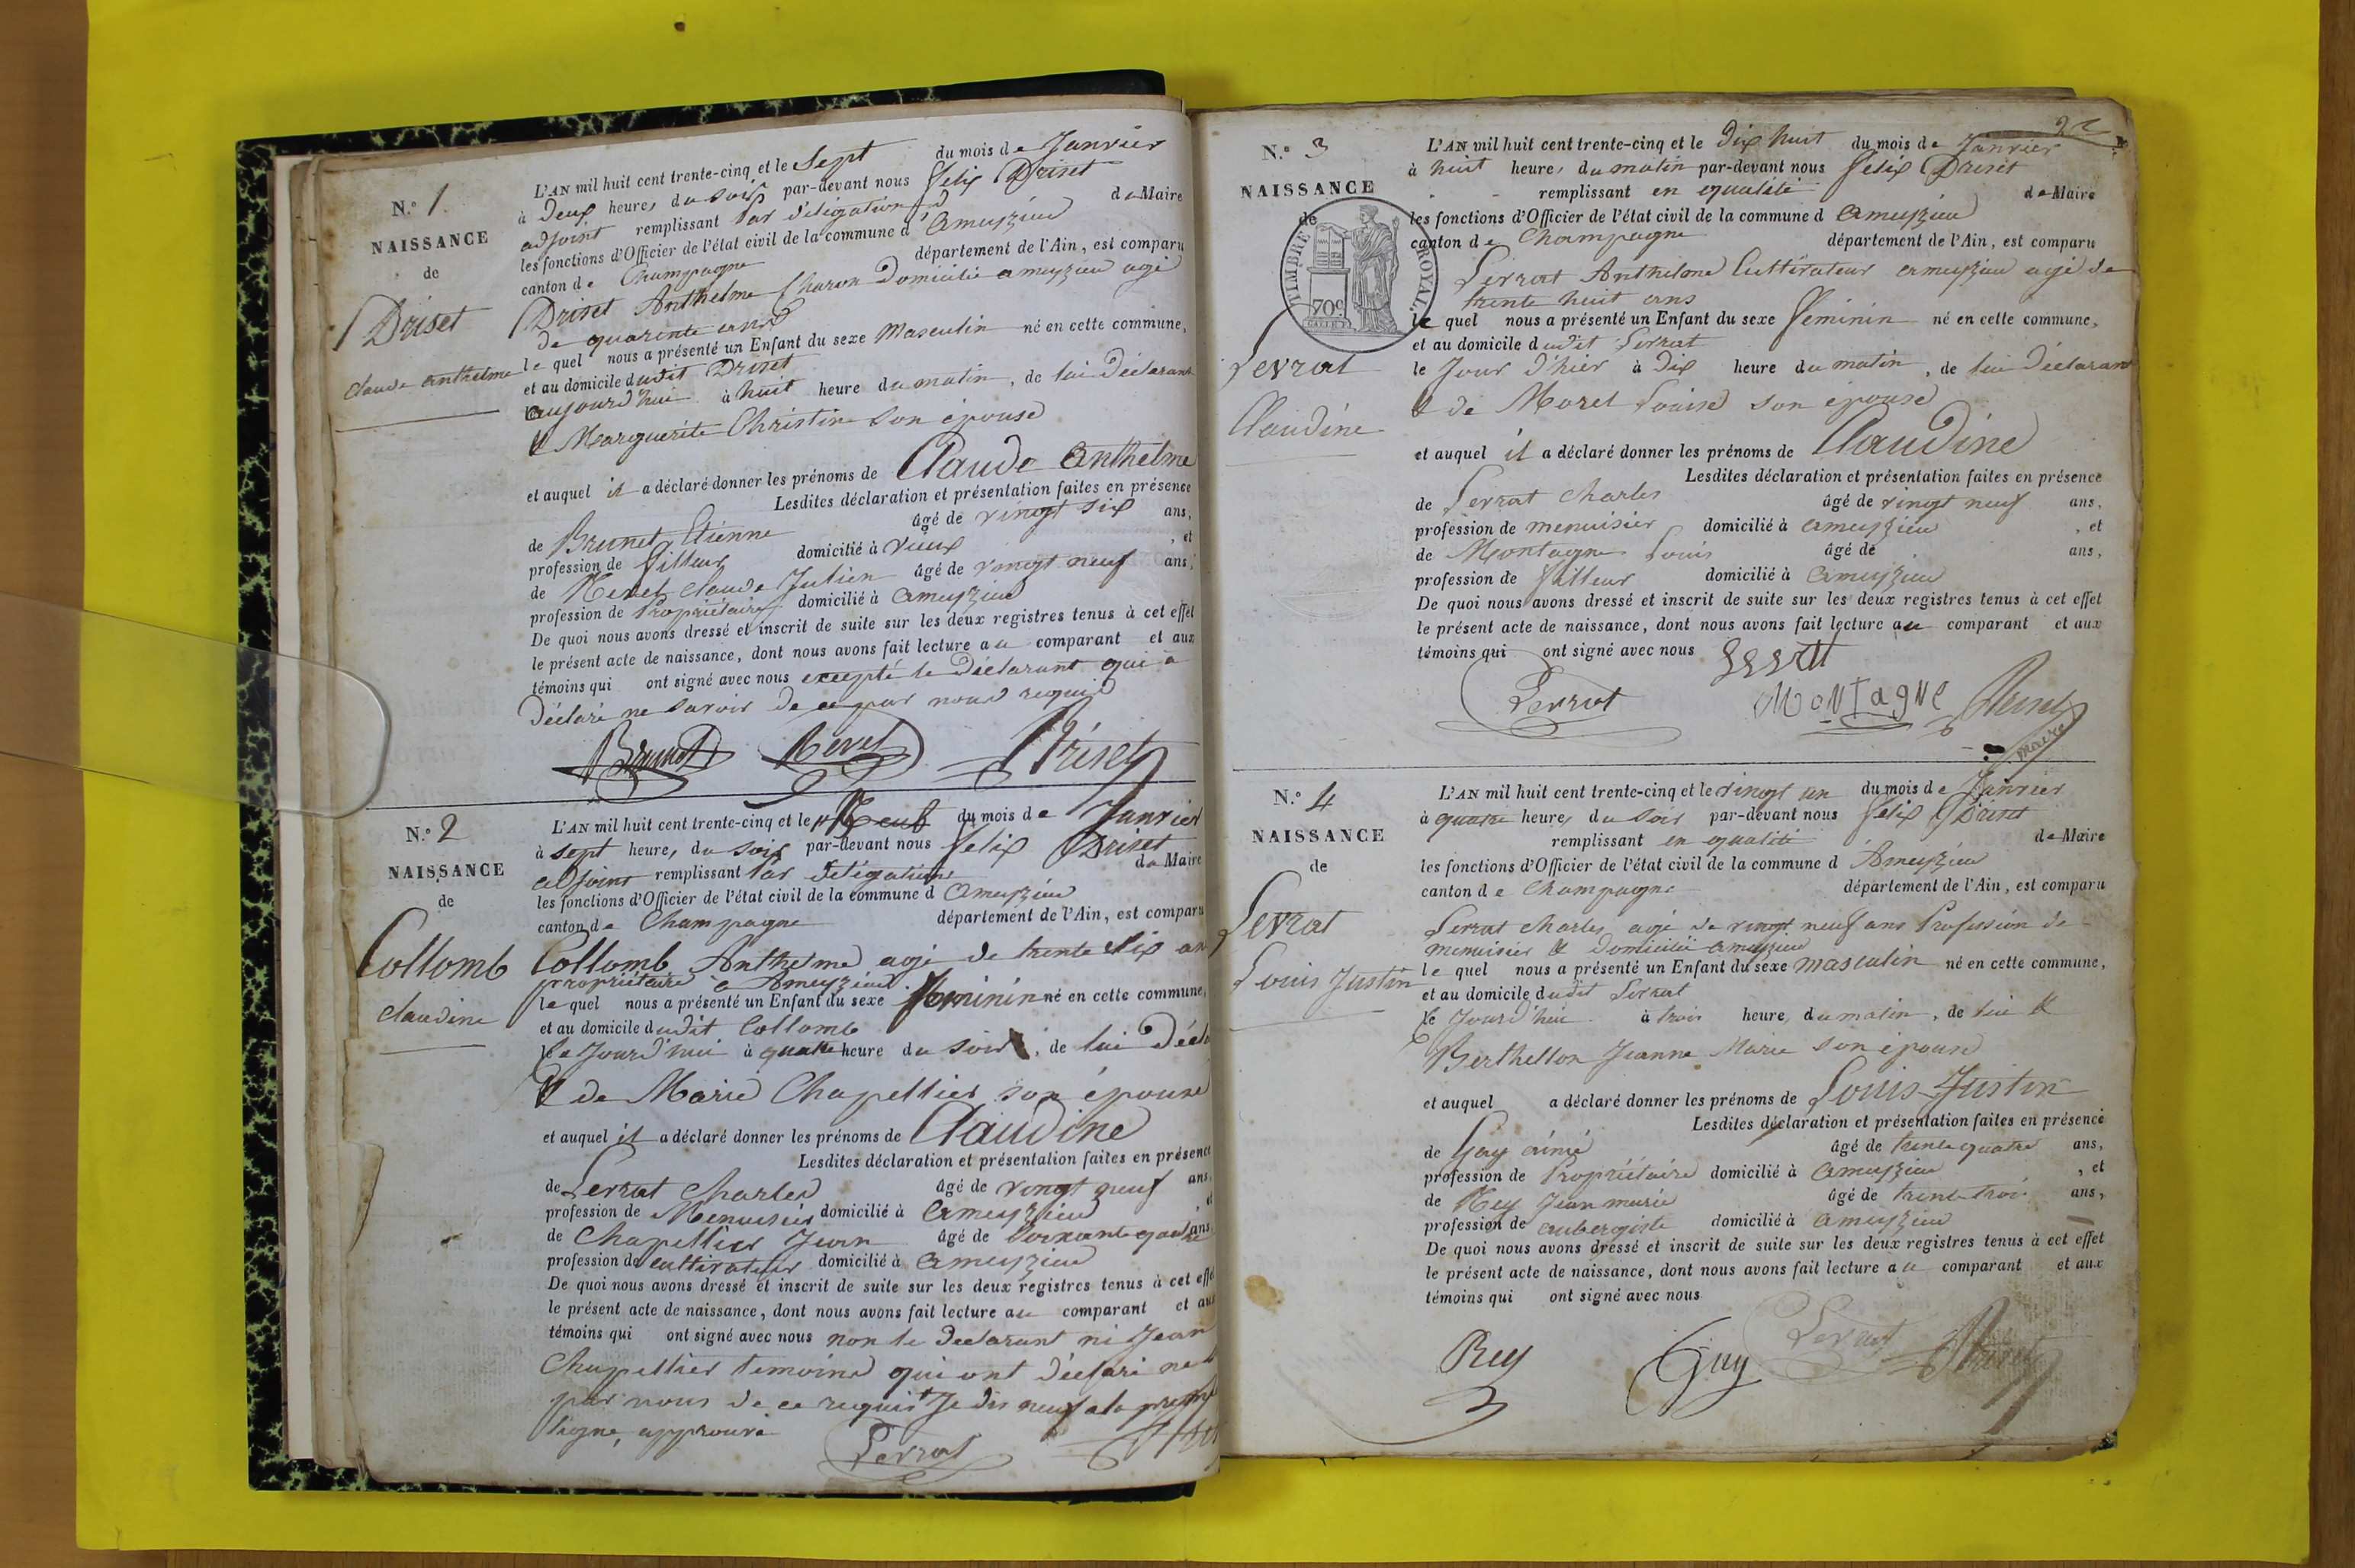 N.º 1.
NAISSANCE
de
Driset
Claude anthelme
L'AN mil huit cent trente-cinq et le Sept du mois de Janvier
à deux heures du Soir par-devant nous Felix Driset
adjoint remplissant par délégation du Maire
les fonctions d'Officier de l'état civil de la commune d'ameyzieu
canton de Champagne département de l'Ain, est comparu
Driset Anthelme Charon Domicilié ameyzieu agé
de quarente ans
le quel nous a présenté un Enfant du sexe Masculin né en cette commune,
et au domicile dudit Driset
aujourd'hui à huit heure du matin, de lui Déclarant
& Marguerite Christine Son épouse
et auquel il a déclaré donner les prénoms de Claude Anthelme
Lesdites déclaration et présentation faites en présence
de Brunet Etienne âgé de vingt six ans,
profession de Tilleur domicilié à vieux , et
de Revel Claude Julien âgé de vingt neuf ans,
profession de Propriétaire domicilié à ameyzieu
De quoi nous avons dressé et inscrit de suite sur les deux registres tenus à cet effet
le présent acte de naissance, dont nous avons fait lecture au comparant et aux
témoins qui ont signé avec nous excepté le Déclarant qui a
Déclaré ne Savoir de ce par nous requis
Brunet Revel Driset
N.º 2
NAISSANCE
de
Collomb
Claudine
L'AN mil huit cent trente-cinq et le Neuf du mois de Janvier
à sept heure, du soir par-devant nous Felix Driset
adjoint remplissant par délégation du Maire
les fonctions d'Officier de l'état civil de la commune d ameyzieu
canton de Champagne département de l'Ain, est comparu
Collomb Anthelme agé de trente Six an
propriétaire a Ameyzieu
le quel nous a présenté un Enfant du sexe Feminin né en cette commune,
et au domicile dudit Collomb
le Jourd'hui à quatre heure du Soir, de lui Décla
& de Marie Chapellier son épouse
et auquel il a déclaré donner les prénoms de Claudine
Lesdites déclaration et présentation faites en présence
de Serrat Charles âgé de vingt neuf ans,
profession de Menuisier domicilié à ameyzieu , et
de Chapellier Jean âgé de Soixante quatre ans
profession de cultivateur domicilié à ameyzieu
De quoi nous avons dressé et inscrit de suite sur les deux registres tenus à cet effet
le présent acte de naissance, dont nous avons fait lecture au comparant et aux
témoins qui ont signé avec nous non le Declarant ni Jean
Chapellier temoins qui ont déclaré ne
par nous de ce requis Je dis neuf a la
ligne, approuvé
Serrat
22
N.º 3
NAISSANCE
de
TIMBRE ROYAL.
70c
Serrat
Claudine
L'AN mil huit cent trente-cinq et le Dix huit du mois de Janvier
à huit heure, du matin par-devant nous Felix Driset
remplissant en qualité de Maire
les fonctions d'Officier de l'état civil de la commune d ameyzieu
canton de Champagne département de l'Ain, est comparu
Serrat Anthelme Cultivateur ameyzieu agé de
trente huit ans
le quel nous a présenté un Enfant du sexe Feminin né en cette commune,
et au domicile dudit Serrat
le Jour d'hier à Dix heure du matin, de lui Déclarant
& de Morel Louise son épouse
et auquel il a déclaré donner les prénoms de Claudine
Lesdites déclaration et présentation faites en présence
de Serrat Charles âgé de vingt neuf ans,
profession de menuisier domicilié à ameyzieu , et
de Montagne Louis âgé de ans,
profession de Tilleur domicilié à ameyzieu
De quoi nous avons dressé et inscrit de suite sur les deux registres tenus à cet effet
le présent acte de naissance, dont nous avons fait lecture au comparant et aux
témoins qui ont signé avec nous
Serrat MONTAGNE Driset
maire
N.º 4
NAISSANCE
de
Serrat
Louis Justin
L'AN mil huit cent trente-cinq et le vingt un du mois de Janvier
à quatre heure, du Soir par-devant nous Felix Driset
remplissant en qualité de Maire
les fonctions d'Officier de l'état civil de la commune d Ameyzieu
canton de Champagne département de l'Ain, est comparu
Serrat Charles agé de vingt neuf ans Profession de
menuisier & Domicilié ameyzieu
le quel nous a présenté un Enfant du sexe masculin né en cette commune,
et au domicile dudit Serrat
le Jourd'hui à trois heure, du matin, de lui &
Berthellon Jeanne Marie son épouse
et auquel a déclaré donner les prénoms de Louis Justin
Lesdites déclaration et présentation faites en présence
de Guy aimé âgé de trente quatre ans,
profession de Propriétaire domicilié à ameyzieu , et
de Rey Jean marie âgé de trente trois ans,
profession de aubergiste domicilié à ameyzieu
De quoi nous avons dressé et inscrit de suite sur les deux registres tenus à cet effet
le présent acte de naissance, dont nous avons fait lecture au comparant et aux
témoins qui ont signé avec nous
Rey Guy Serrat Driset